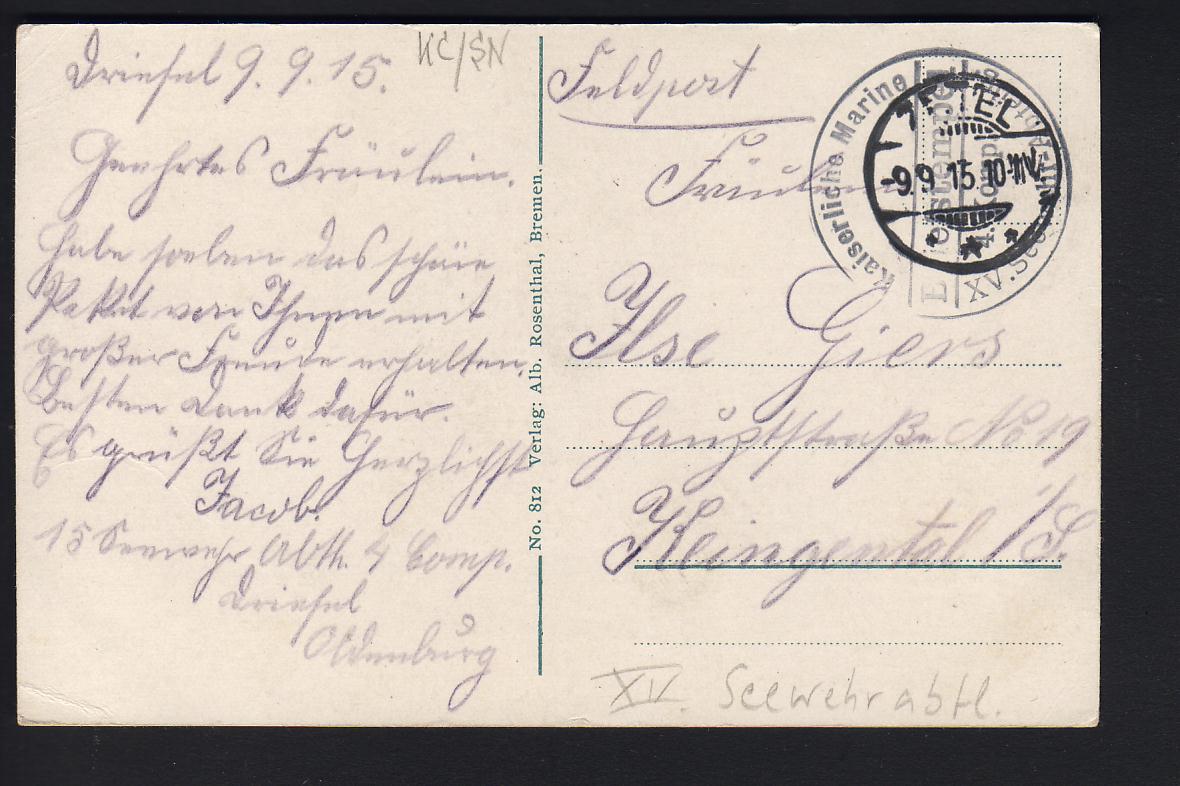 Driefel 9. 9. 15.
KC/SN
Geehrtes Fräulein.
Habe soeben das schöne
Paket von Ihnen mit
großer Freude erhalten.
Besten Dank dafür.
Es grüßt Sie Herzlichst
Jacob.
15 Seewehr Abth. 4 Comp.
Driefel
Oldenburg
No. 812 Verlag: Alb. Rosenthal, Bremen.
Feldpost
Fräulein
Ilse Giers
Hauptstraße No 19
Kaiserliche Marine
Briefstempel
4. Komp
XV. See
ZETEL
-9.9.15.10-11V.
XV. Seewehrabtl.